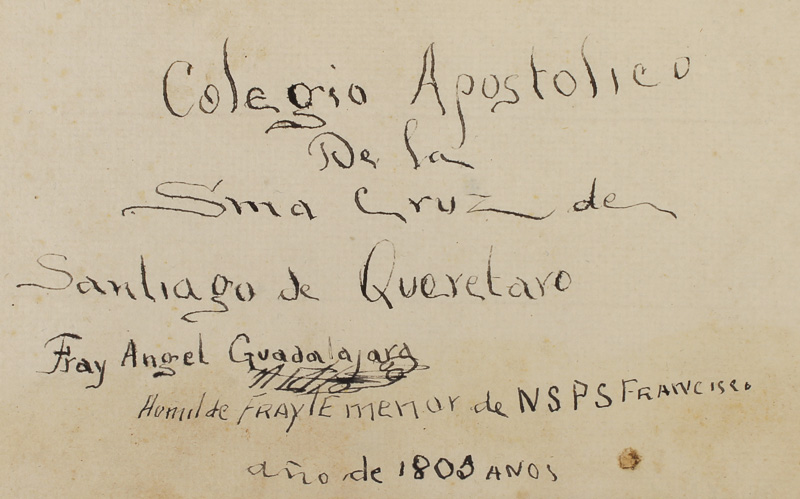 Colegio Apostolico
De la
Sma Cruz de
Santiago de Queretaro
Fray Angel Guadalajara
Humilde FRAYLE menor de NSPS FRANCISCO
año de 1803 ANOS